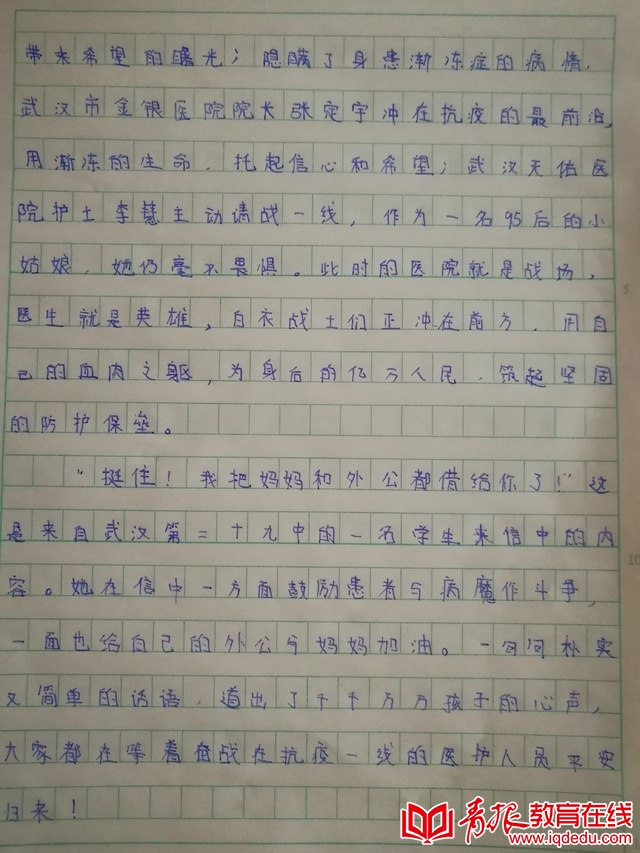 带来希望的曙光；隐瞒了身患渐冻症的病情，
武汉市金银医院院长张定宇冲在抗疫的最前沿，
用渐冻的生命，托起信心和希望；武汉天佑医
院护士李慧主动请战一线，作为一名95后的小
姑娘，她仍毫不畏惧。此时的医院就是战场，
医生就是英雄，白衣战士们正冲在前方，用自
己的血肉之躯，为身后的亿万人民，筑起坚固
的防护保垒。
“挺住！我把妈妈和外公都借给你了！”这
是来自武汉第二十九中的一名学生来信中的内
容。她在信中一方面鼓励患者与病魔作斗争，
一面也给自己的外公与妈妈加油。一句句朴实
又简单的话语，道出了千千万万孩子的心声，
大家都在等着奋战在抗疫一线的医护人员平安
归来！
5
10
青报教育在线
www.iqdedu.com